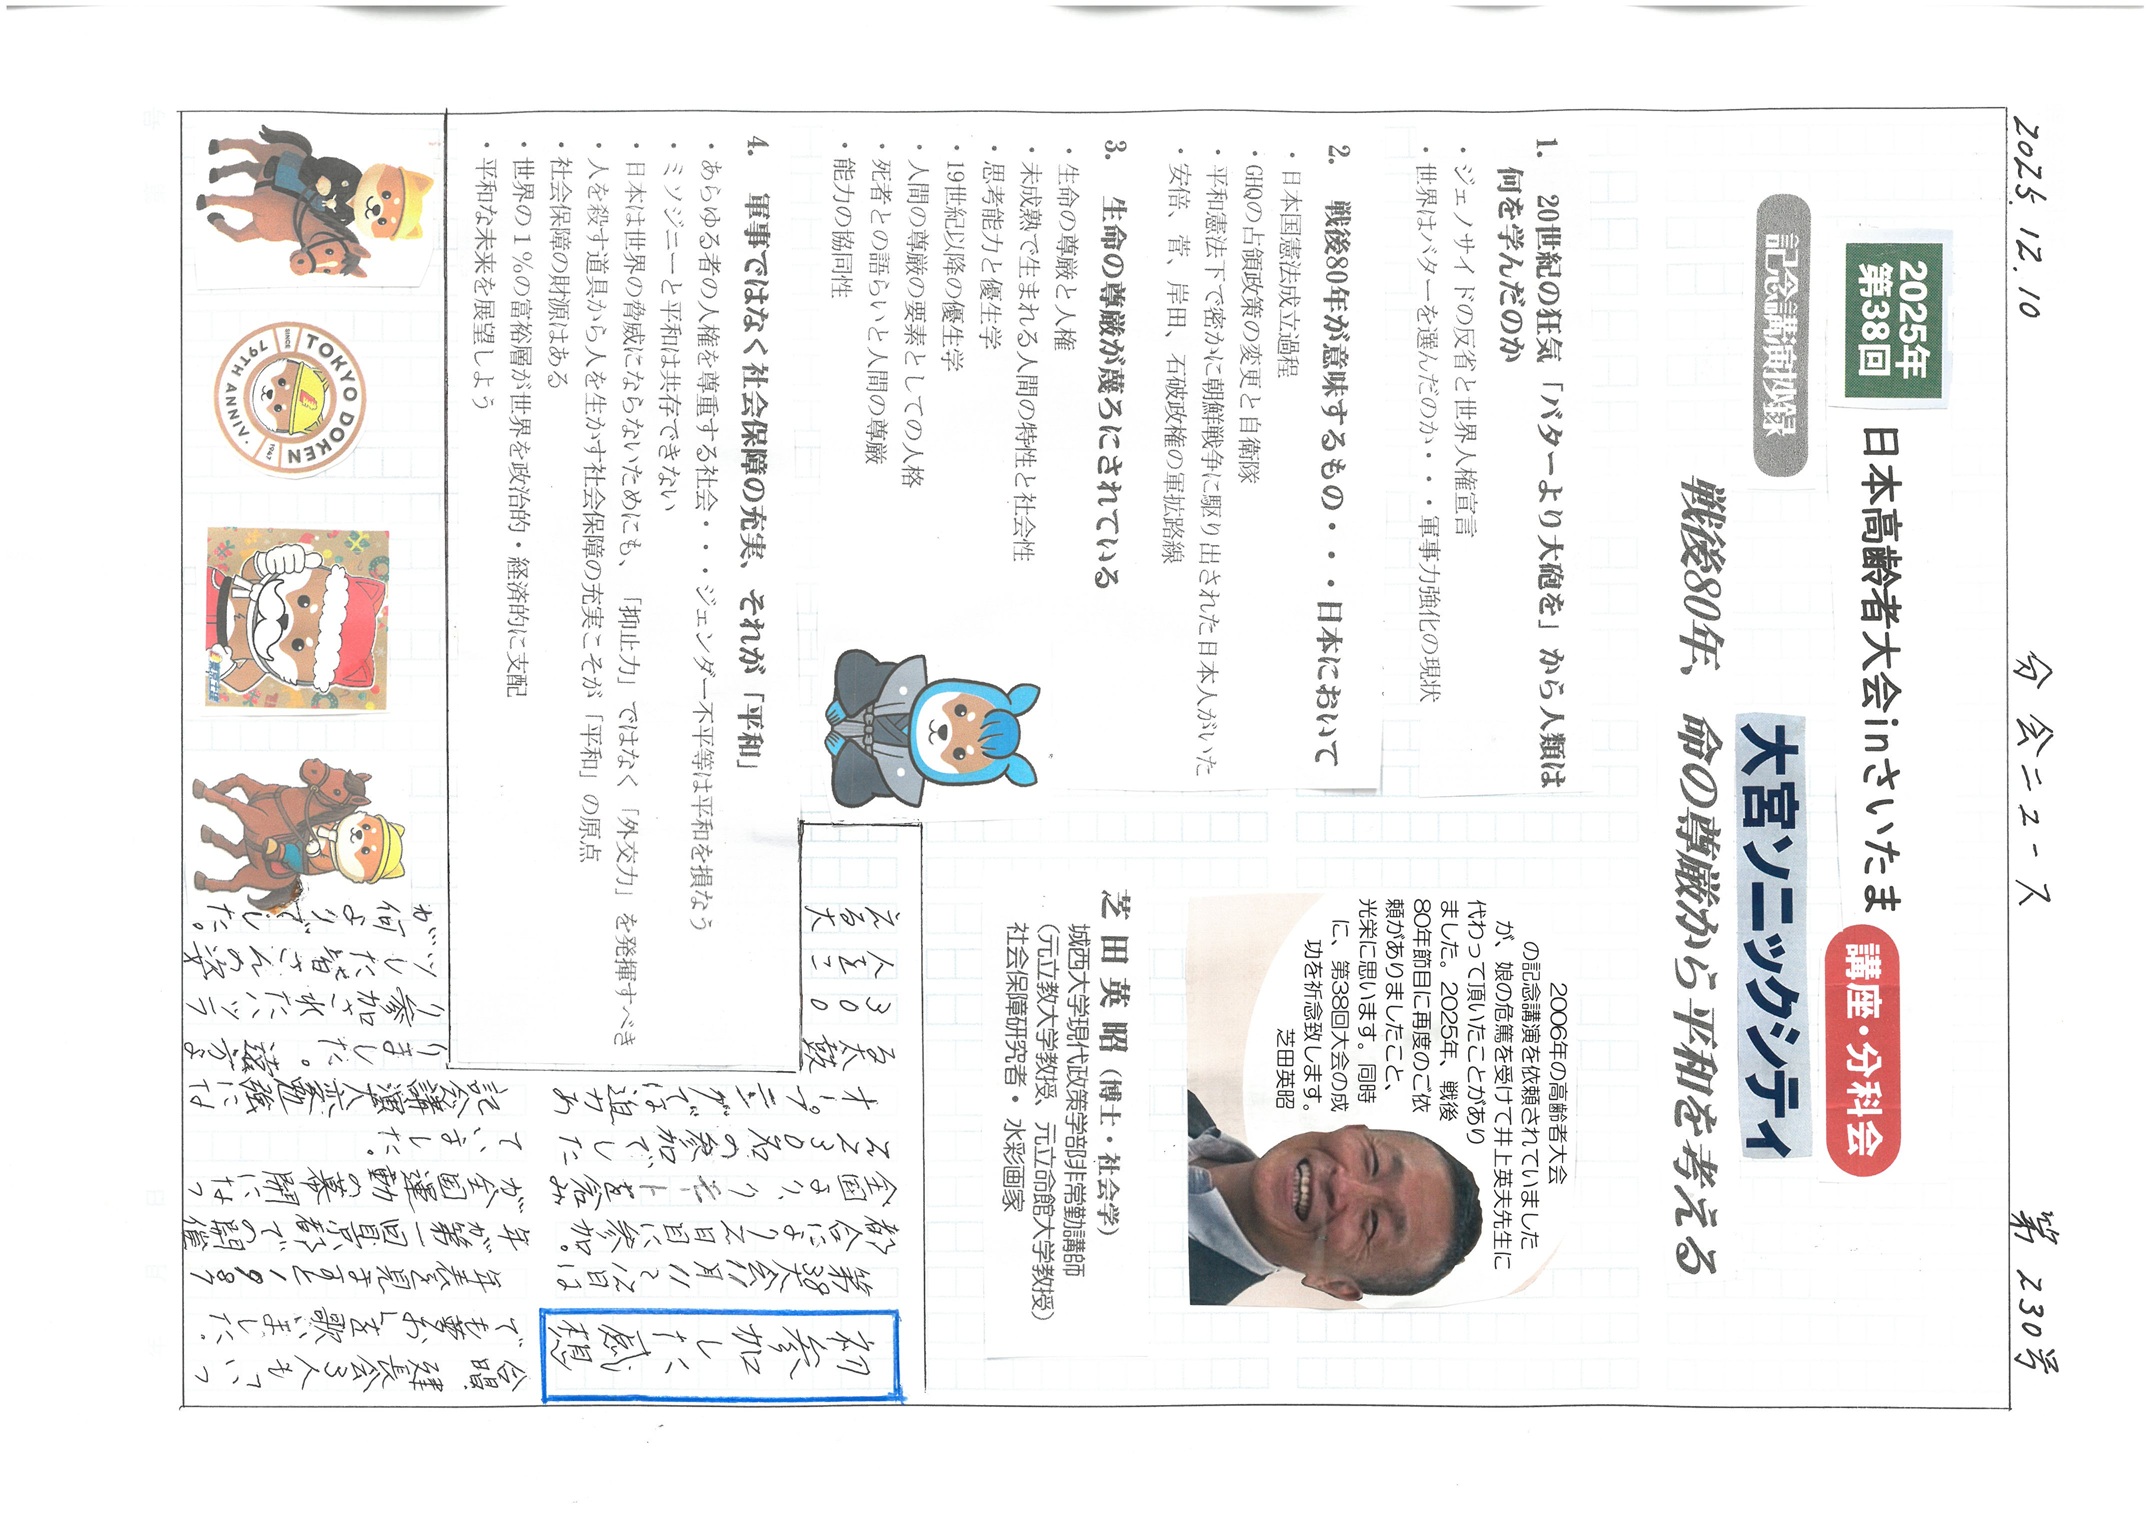 2025.12.10 分会ニュース 第230号
2025年
第38回
日本高齢者大会inさいたま
講座・分科会
記念講演抄録
大宮ソニックシティ
戦後80年、命の尊厳から平和を考える
1. 20世紀の狂気「バターより大砲を」から人類は
何を学んだのか
・ジェノサイドの反省と世界人権宣言
・世界はバターを選んだのか・・・軍事力強化の現状
2. 戦後80年が意味するもの・・・日本において
・日本国憲法成立過程
・GHQの占領政策の変更と自衛隊
・平和憲法下で密かに朝鮮戦争に駆り出された日本人がいた
・安倍、菅、岸田、石破政権の軍拡路線
3. 生命の尊厳が蔑ろにされている
・生命の尊厳と人権
・未成熟で生まれる人間の特性と社会性
・思考能力と優生学
・19世紀以降の優生学
・人間の尊厳の要素としての人格
・死者との語らいと人間の尊厳
・能力の協同性
4. 軍事ではなく社会保障の充実、それが「平和」
・あらゆる者の人権を尊重する社会・・・ジェンダー不平等は平和を損なう
・ミソジニーと平和は共存できない
・日本は世界の脅威にならないためにも、「抑止力」ではなく「外交力」を発揮すべき
・人を殺す道具から人を生かす社会保障の充実こそが「平和」の原点
・社会保障の財源はある
・世界の1%の富裕層が世界を政治的・経済的に支配
・平和な未来を展望しよう
2006年の高齢者大会
の記念講演を依頼されていました
が、娘の危篤を受けて井上英夫先生に
代わって頂いたことがあり
ました。2025年、戦後
80年節目に再度のご依
頼がありましたこと、
光栄に思います。同時
に、第38回大会の成
功を祈念致します。
芝田英昭
芝田英昭（博士・社会学）
城西大学現代政策学部非常勤講師
（元立教大学教授、元立命館大学教授）
社会保障研究者・水彩画家
初参加した、感想
第38大会11月22日は
都合により2日目に参加。
全国より、リモートを含み
2230名の参加でした
オープニングでは迫力あ
る太鼓
300
人をこ
える大
合唱
3人もいつ
でも夢を歌いました。
年表を見ますと1987
年が第一回京都での開催
が全国運動の幕開になっ
ていました。
記念講演は、勉強にな
りました。遠方よ
り参加されたハツラ
ツした皆さんの姿
が何よりでした。
TOKYO DOKEN
SINCE 1947
79TH ANNIV.
東京土建